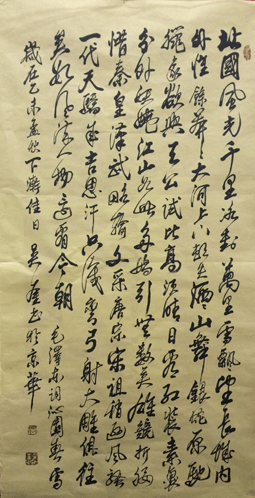 北國風光千里冰封萬里雪飄望長城內
外惟餘莽々大河上下頓失滔々山舞銀蛇原馳
蠟象欲與天公試比高須晴日看紅裝素裹
分外妖嬈江山如此多嬌引無數英雄競折腰
惜秦皇漢武略輸文采唐宗宋祖稍遜風騷
一代天驕成吉思汗只識彎弓射大雕俱往
矣數風流人物還看今朝 毛澤東詞沁園春雪
歲在乙未孟秋下浣佳日 吳 於京華